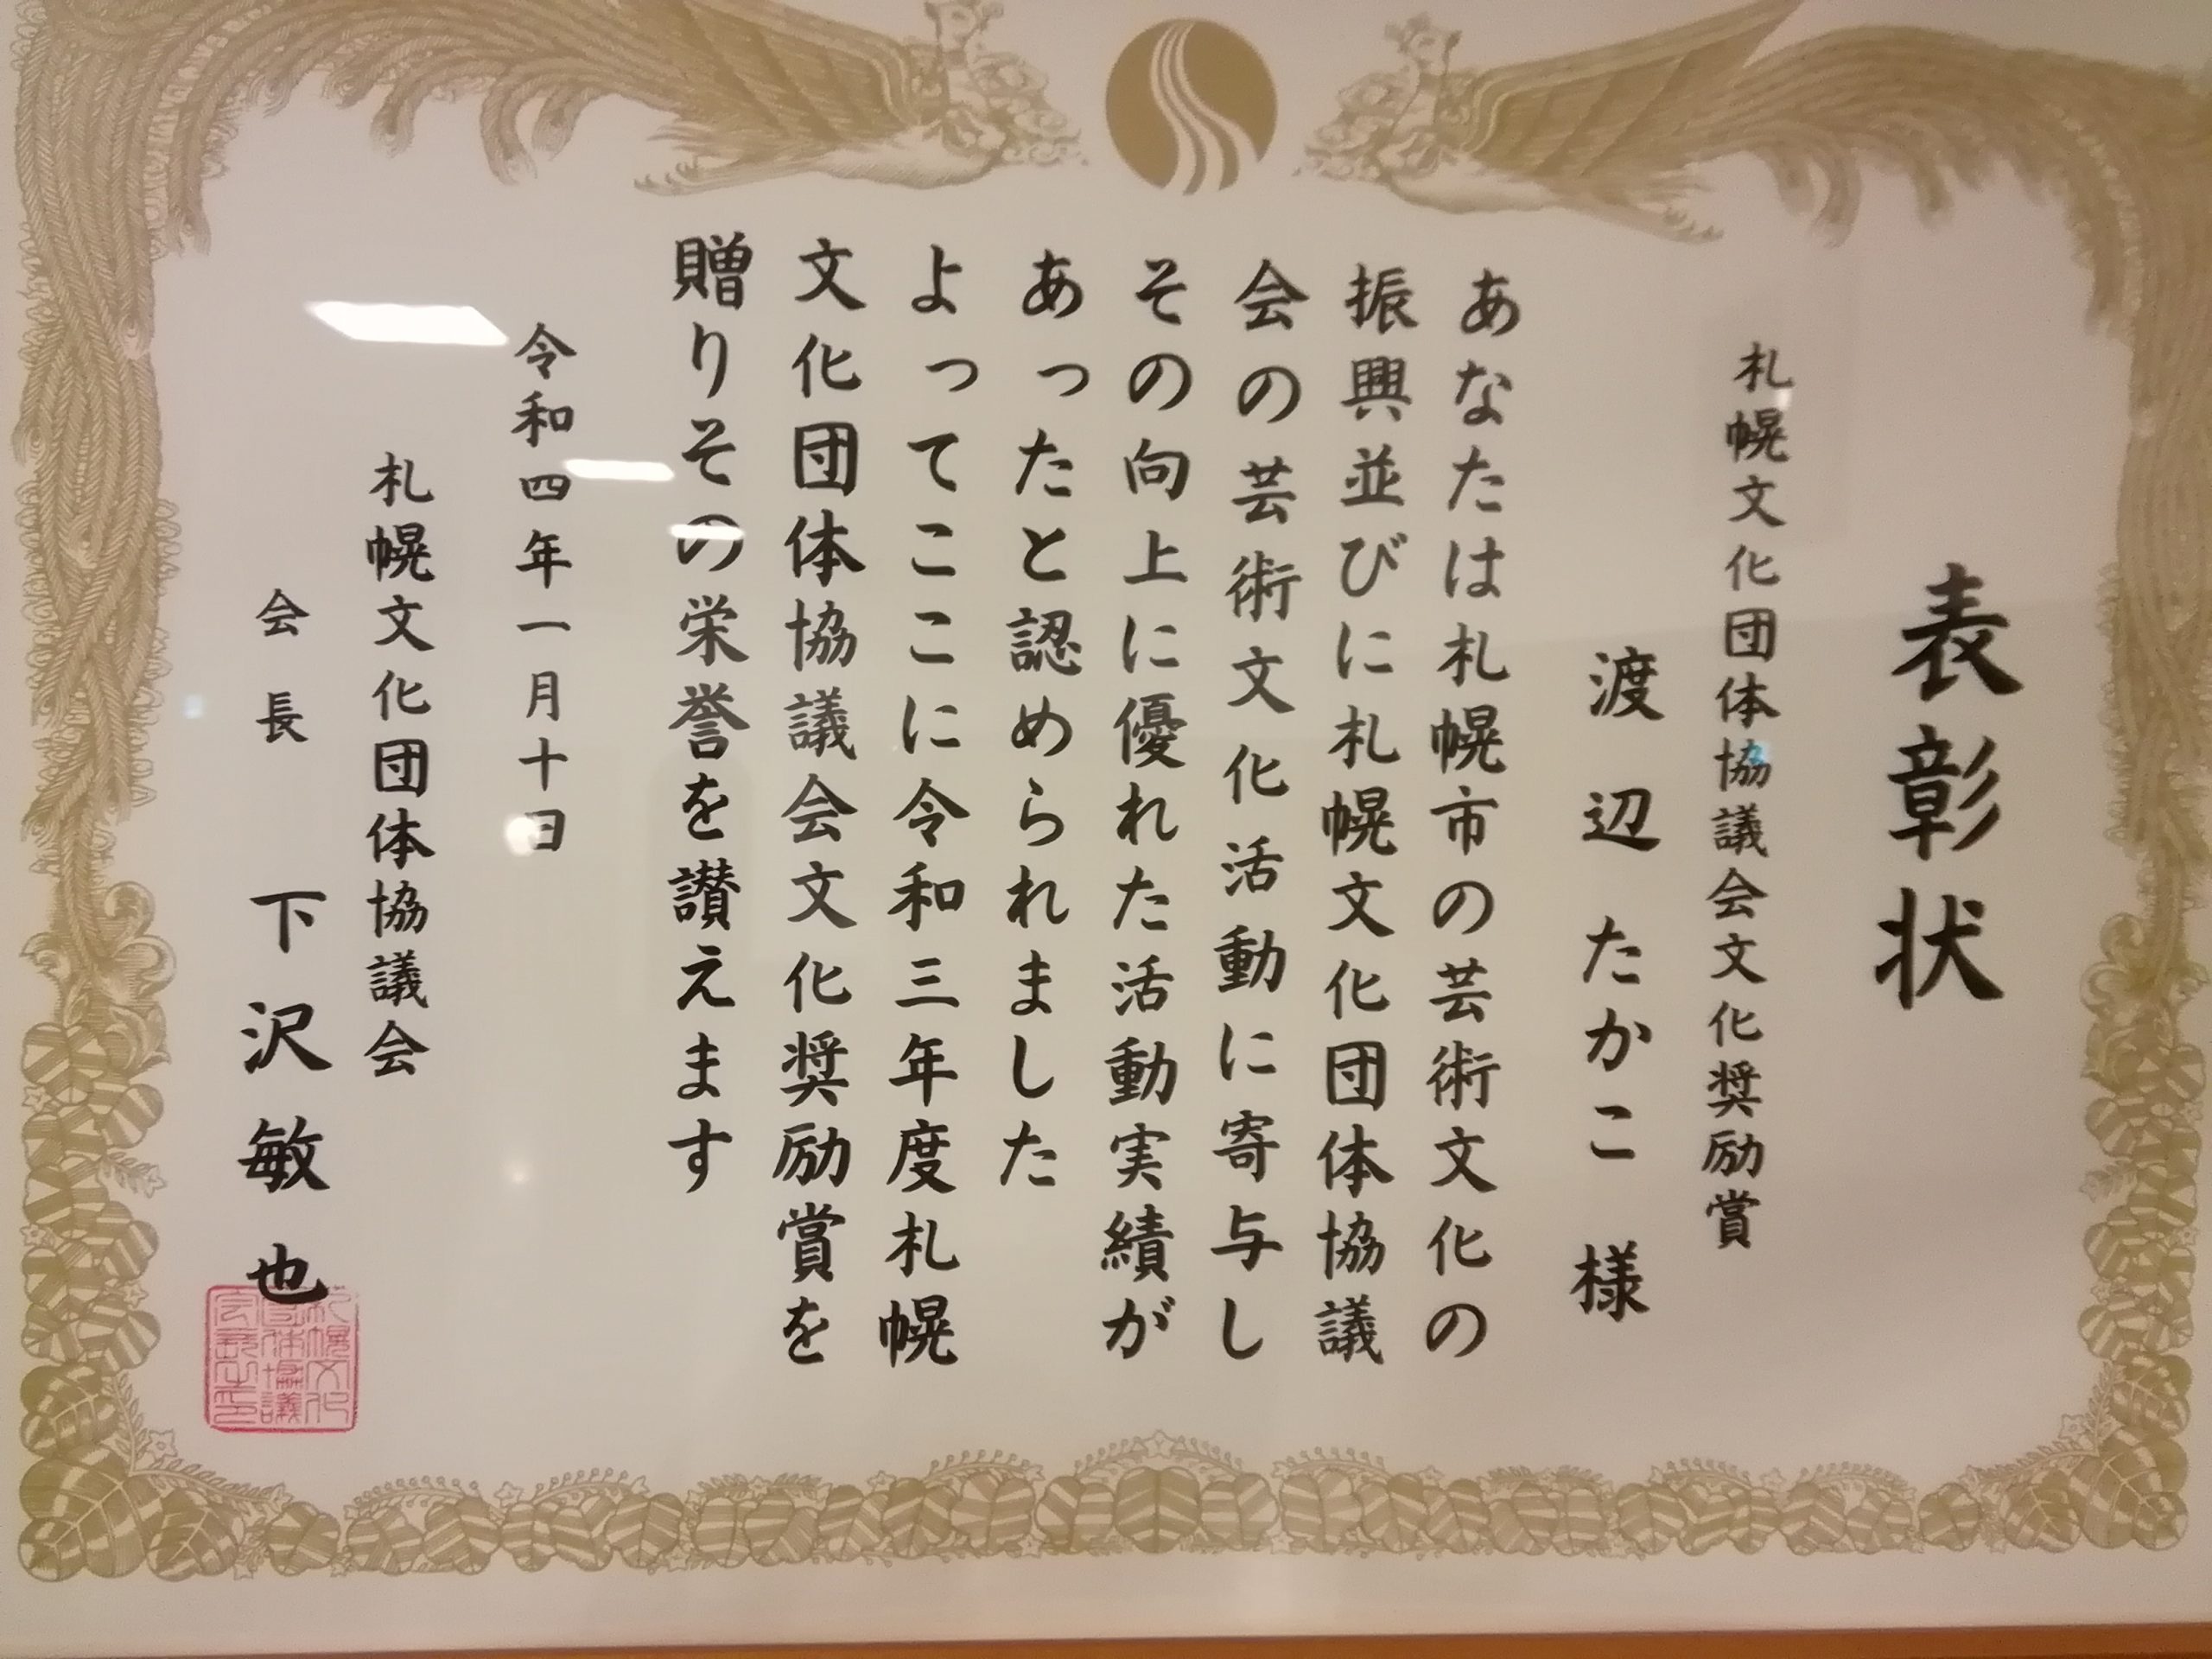 表彰状
札幌文化団体協議会文化奨励賞
渡辺たかこ様
あなたは札幌市の芸術文化の
振興並びに札幌文化団体協議
会の芸術文化活動に寄与し
その向上に優れた活動実績が
あったと認められました
よってここに令和三年度札幌
文化団体協議会文化奨励賞を
贈りその栄誉を讃えます
令和四年一月十日
札幌文化団体協議会
会長 下沢敏也